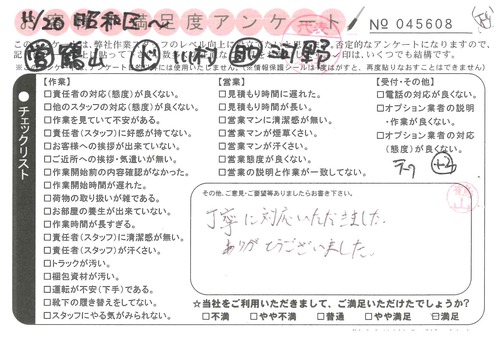 11/20 昭和区へ
満足度アンケート
№ 045608
【作業】
□責任者の対応(態度)が良くない。
□他のスタッフの対応(態度)が良くない。
□作業を見ていて不安がある。
□責任者(スタッフ)に好感が持てない。
□お客様への挨拶が出来ていない。
□ご近所への挨拶・気遣いが無い。
□作業開始前の内容確認がなかった。
□作業開始時間が遅れた。
□荷物の取り扱いが雑である。
□お部屋の養生が出来ていない。
□作業時間が長すぎる。
□責任者(スタッフ)に清潔感が無い。
□責任者(スタッフ)が汗くさい。
□トラックが汚い。
□梱包資材が汚い。
□運転が不安(下手)である。
□靴下の履き替えをしてない。
□スタッフにやる気がみられない。
チェックリスト
【営業】
□見積もり時間に遅れた。
□見積もり時間が長い。
□営業マンに清潔感が無い。
□営業マンが煙草くさい。
□営業マンが汗くさい。
□営業態度が良くない。
□営業の説明と作業が一致してない。
【受付・その他】
□電話の対応が良くない。
□オプション業者の説明
・作業が良くない。
□オプション業者の対応
(態度)が良くない。
その他、ご意見・ご要望等ありましたらお書き下さい。
丁寧に対応いただきました。
ありがとうございました。
☆当社をご利用いただきまして、ご満足いただけたでしょうか?
□不満 □やや不満 □普通 □やや満足 ☑満足